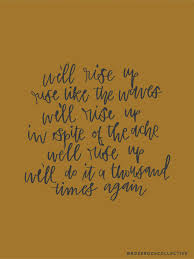 we'll rise up
rise like the waves
we'll rise up
in spite of the ache
we'll rise up
we'll do it a thousand
times again